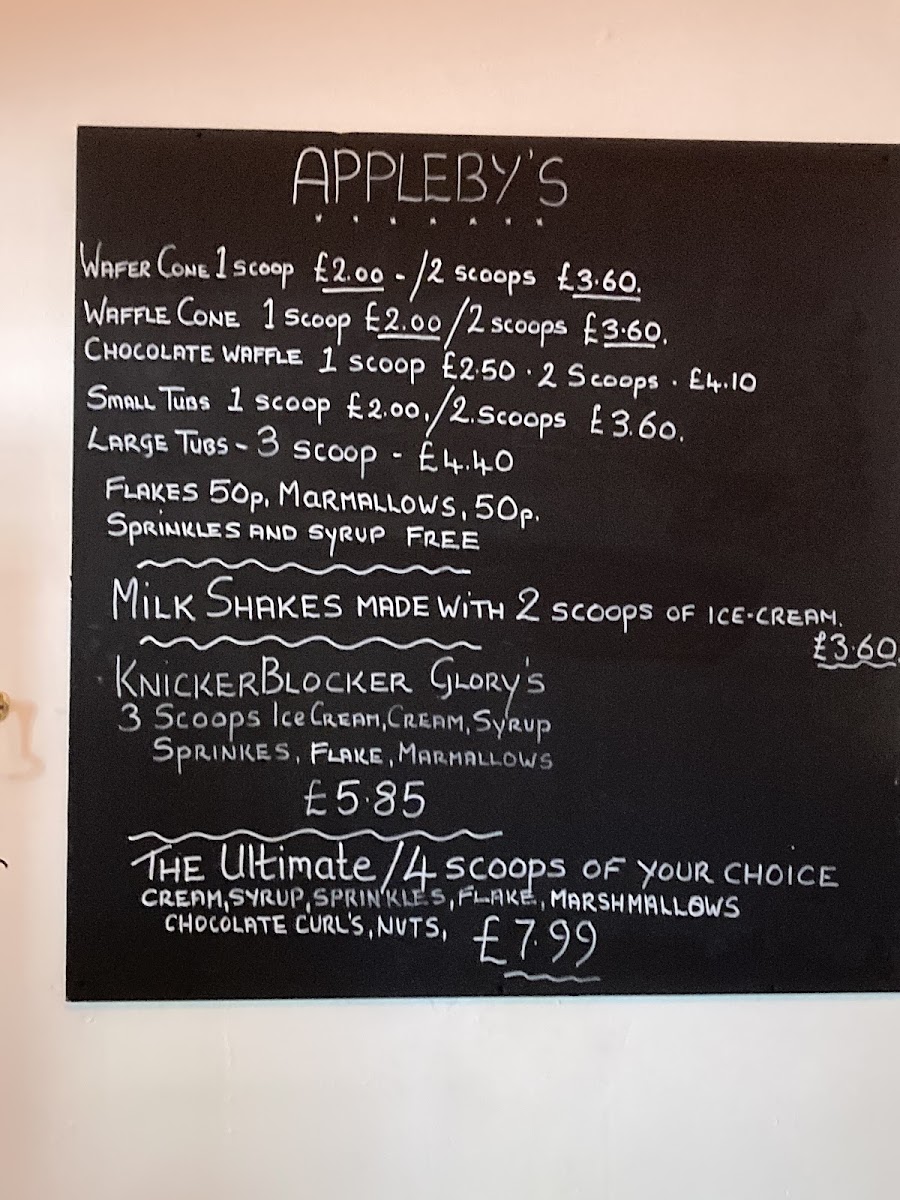 APPLEBY'S
WAFER CONE 1 SCOOP £2.00 - /2 SCOOPS £3.60.
WAFFLE CONE 1 SCOOP £2.00/2 SCOOPS £3.60.
CHOCOLATE WAFFLE 1 SCOOP £2.50 · 2 SCOOPS · £4.10
SMALL TUBS 1 SCOOP £2.00./2.SCOOPS £3.60.
LARGE TUBS - 3 SCOOP - £4.40
FLAKES 50p, MARMALLOWS, 50p.
SPRINKLES AND SYRUP FREE
MILK SHAKES MADE WITH 2 SCOOPS OF ICE-CREAM.
£3.60.
KNICKERBLOCKER GLORY'S
3 SCOOPS ICE CREAM, CREAM, SYRUP
SPRINKES, FLAKE, MARMALLOWS
£5.85
THE Ultimate /4 SCOOPS OF YOUR CHOICE
CREAM, SYRUP, SPRINKLES, FLAKE, MARSHMALLOWS
CHOCOLATE CURL'S, NUTS, £7.99